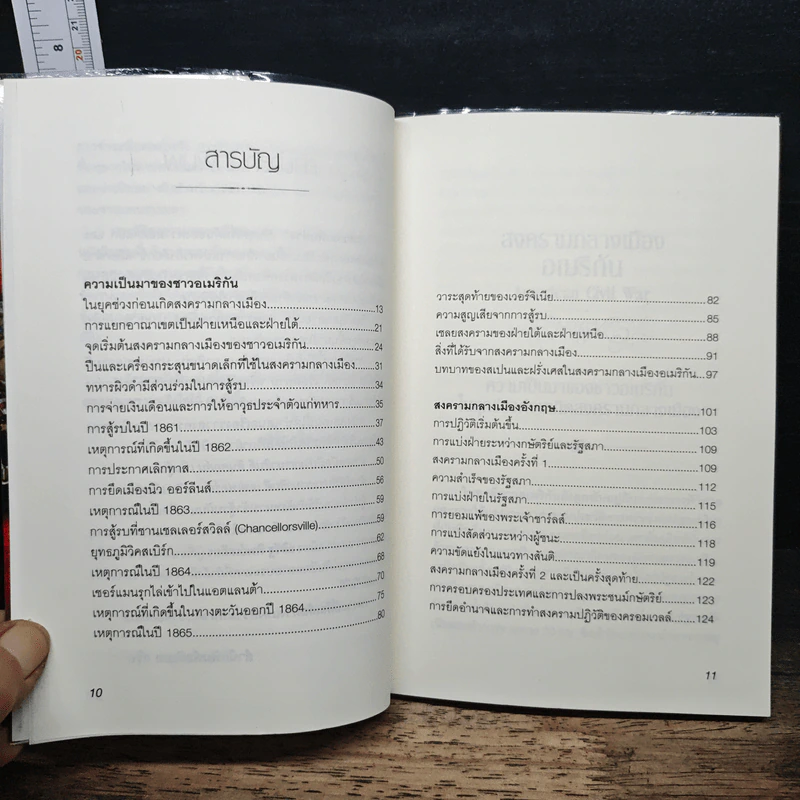 8
21
20
สารบัญ
ความเป็นมาของชาวอเมริกัน
ในยุคช่วงก่อนเกิดสงครามกลางเมือง....................................13
การแยกอาณาเขตเป็นฝ่ายเหนือและฝ่ายใต้....................................21
จุดเริ่มต้นสงครามกลางเมืองของชาวอเมริกัน....................................24
ปืนและเครื่องกระสุนขนาดเล็กที่ใช้ในสงครามกลางเมือง....................................31
ทหารผิวดำมีส่วนร่วมในการสู้รบ....................................34
การจ่ายเงินเดือนและการให้อาวุธประจำตัวแก่ทหาร....................................35
การสู้รบในปี 1861....................................37
เหตุการณ์ที่เกิดขึ้นในปี 1862....................................43
การประกาศเลิกทาส....................................50
การยึดเมืองนิว ออร์ลีนส์....................................56
เหตุการณ์ในปี 1863....................................59
การสู้รบที่ชานเซลเลอร์สวิลล์ (Chancellorsville)....................................59
ยุทธภูมิวิคสเบิร์ก....................................62
เหตุการณ์ในปี 1864....................................68
เชอร์แมนรุกไล่เข้าไปในแอตแลนต้า....................................70
เหตุการณ์ที่เกิดขึ้นในทางตะวันออกปี 1864....................................75
เหตุการณ์ในปี 1865....................................80
10
วาระสุดท้ายของเวอร์จิเนีย....................................82
ความสูญเสียจากการสู้รบ....................................85
เชลยสงครามของฝ่ายใต้และฝ่ายเหนือ....................................88
สิ่งที่ได้รับจากสงครามกลางเมือง....................................91
บทบาทของสเปนและฝรั่งเศสในสงครามกลางเมืองอเมริกัน....................................97
สงครามกลางเมืองอังกฤษ....................................101
การปฏิวัติเริ่มต้นขึ้น....................................103
การแบ่งฝ่ายระหว่างกษัตริย์และรัฐสภา....................................109
สงครามกลางเมืองครั้งที่ 1....................................109
ความสำเร็จของรัฐสภา....................................112
การแบ่งฝ่ายในรัฐสภา....................................115
การยอมแพ้ของพระเจ้าชาร์ลส์....................................116
การแบ่งสัดส่วนระหว่างผู้ชนะ....................................118
ความขัดแย้งในแนวทางสันติ....................................119
สงครามกลางเมืองครั้งที่ 2 และเป็นครั้งสุดท้าย....................................122
การครอบครองประเทศและการปลงพระชนม์กษัตริย์....................................123
การยึดอำนาจและการทำสงครามปฏิวัติของครอมเวลล์....................................124
11